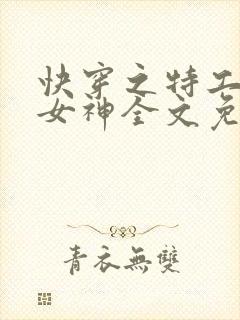 快穿之特工
女神全文免
青衣無雙